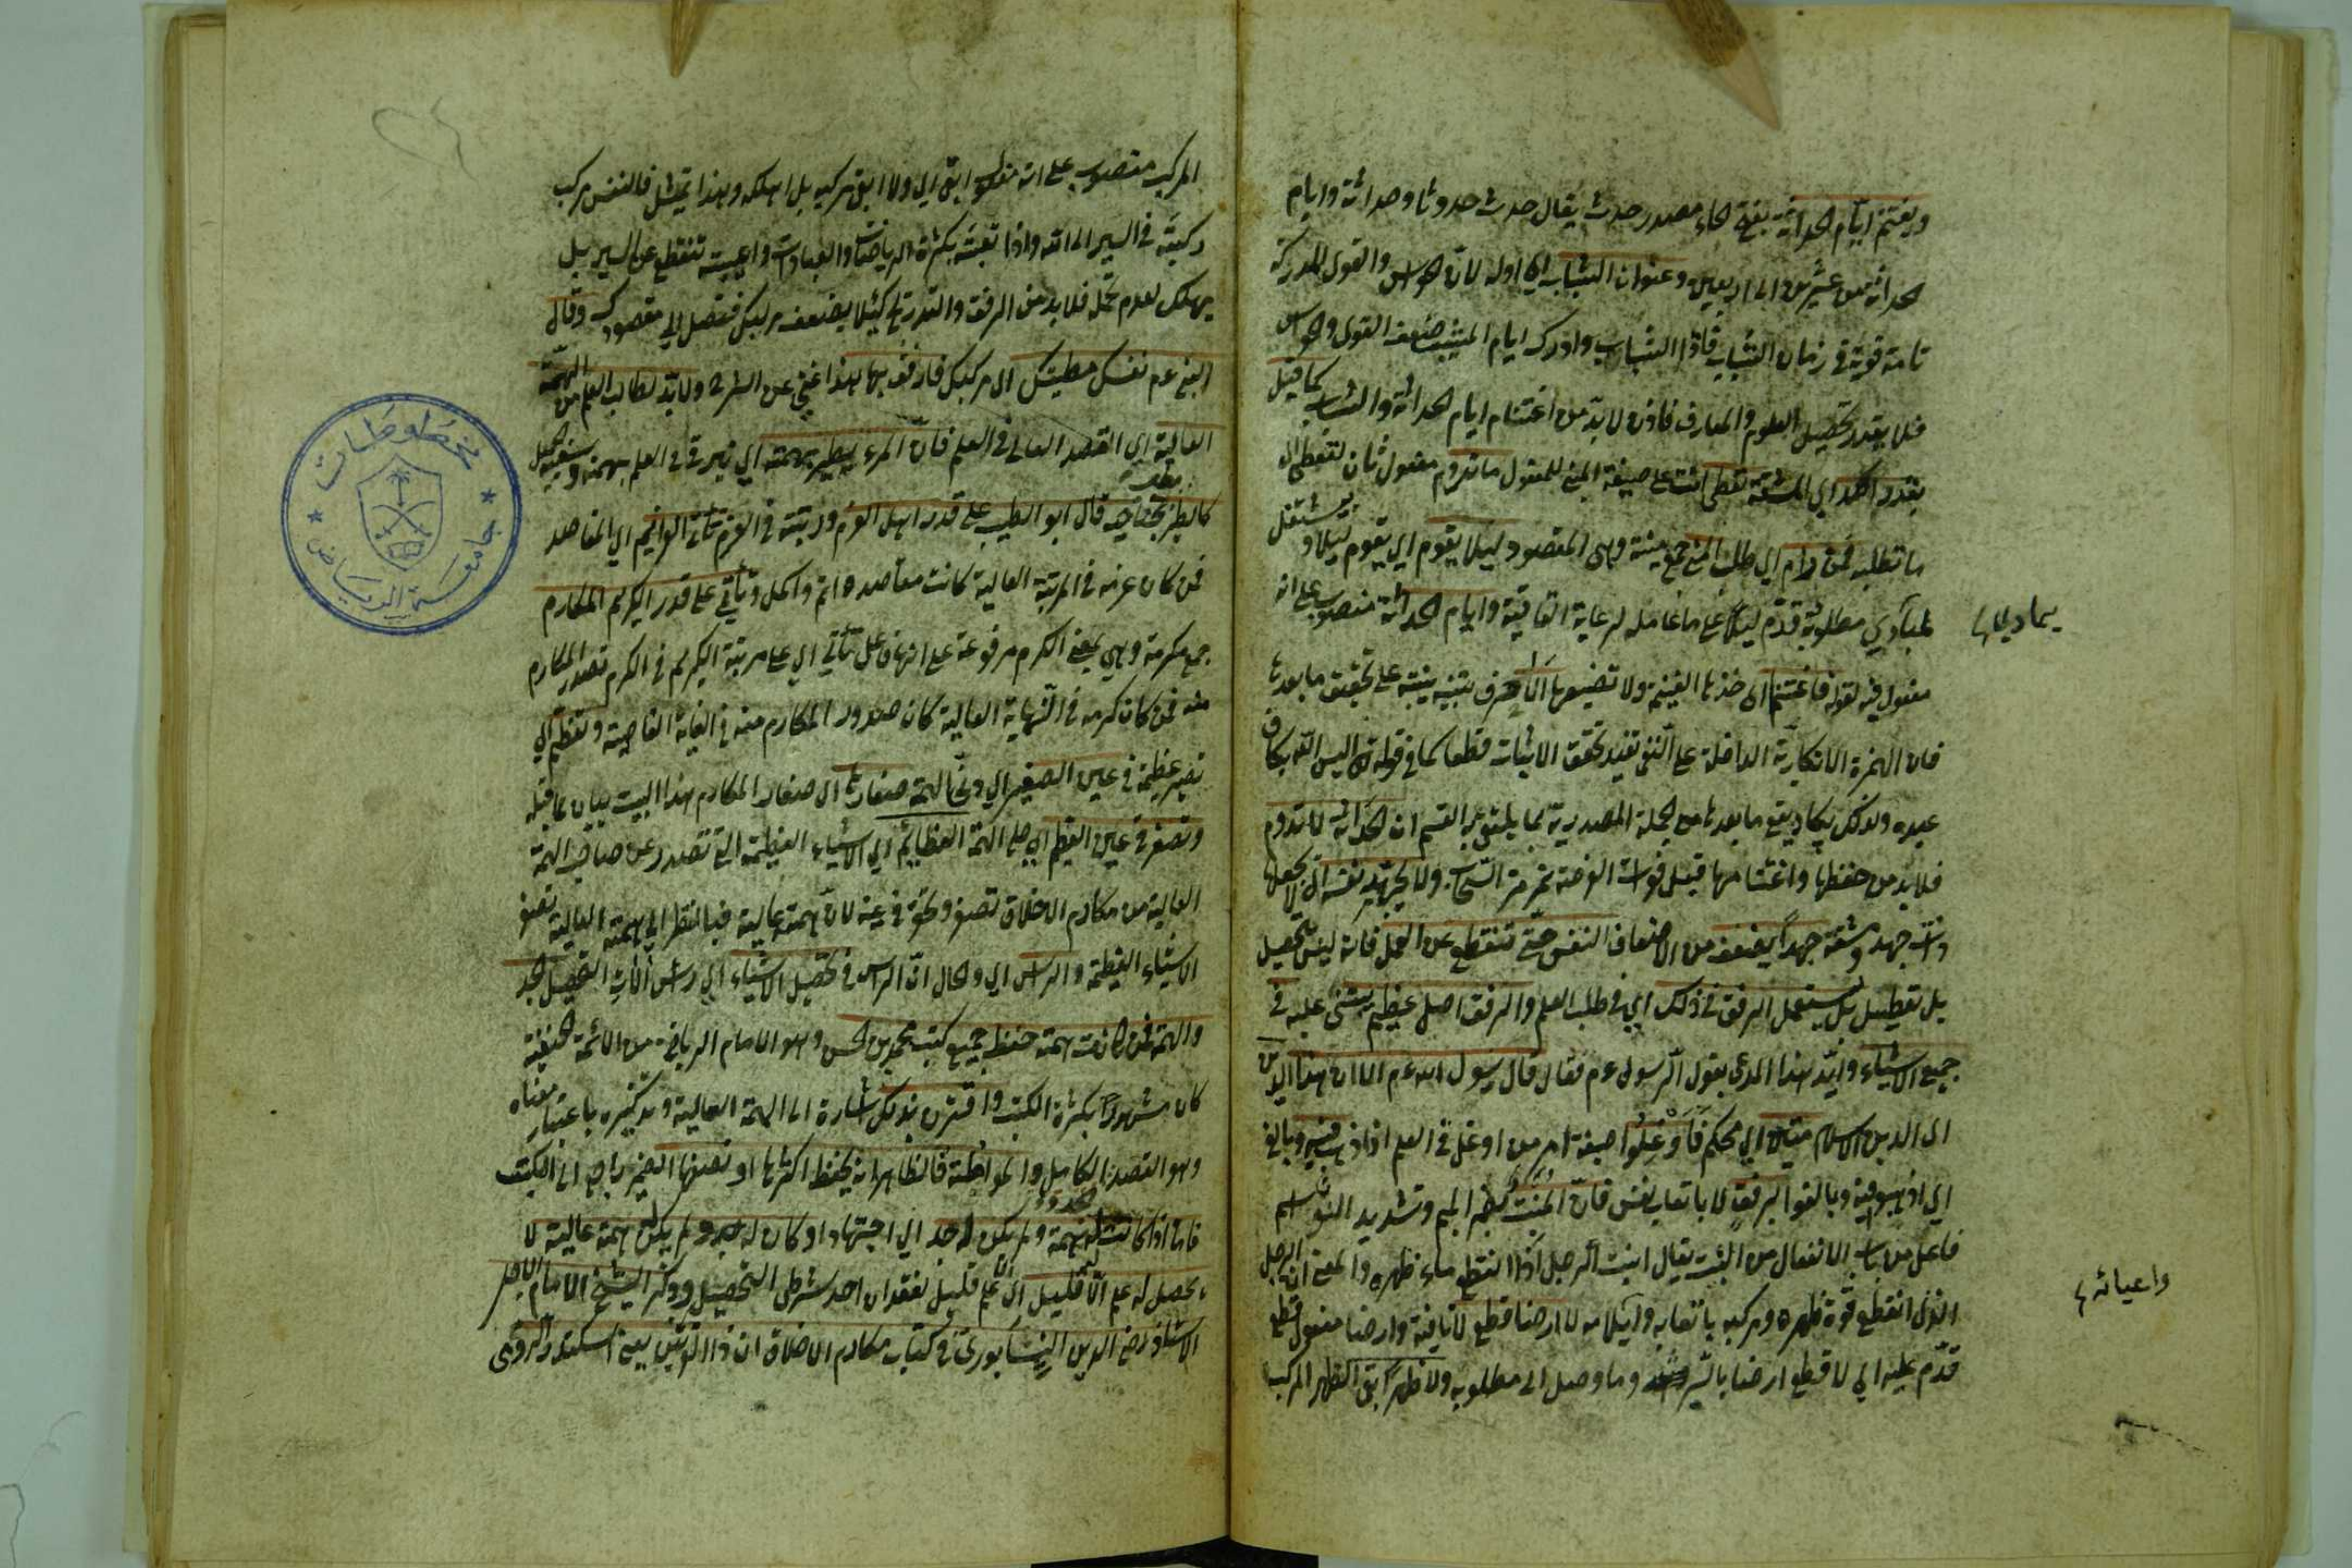 ويغتنم ايام الحداثة بفتح الحاء مصدر حدث يقال حدث حدوثا وحداثة وايام
الحداثة من عشرين الى اربعين وعنوان الشباب اي اوله لان الحواس والقوى المدركة
تامة قوية في زمان الشباب فاذا الشباب وادرك ايام المشيب ضعف القوى والحواس
فلا يقدر تحصيل العلوم والمعارف فاذن لا بد من اغتنام ايام الحداثة والشباب كما قيل
بقدر الكد اي المشقة تعطى انت على صيغة المبني للمفعول ما تروم مفعول ثان لتعطى اي
ما تطلبه فمن رام اي طلب المنى جمع منية وهي المقصود ليلا يقوم اي يقوم ليلا ويشتغل
لمبادي مطلوبه قدم ليلا على ما عامله لرعاية القافية وايام الحداثة منصوب على انه
مفعول فيه لقوله فاغتنمها اي خذها الغنيمة ولا تضيعها الا حرف تنبيه ينبه على تحقيق ما بعدها
فان الهمزة الانكارية الداخلة على النفي تفيد تحقق الاثبات قطعا كما في قوله تعالى اليس الله بكاف
عبده ولذلك يكاد يقع ما بعدها من الجملة المصدرية بما يلتقي به القسم ان الحداثة لا تدوم
فلا بد من حفظها واغتنامها قبل فوات الفرصة تمر مر السحاب ولا يجهد نفسه اي لا يجعلها
ذات جهد ومشقة جهدا يضعف من الاضعاف النفس حتى تنقطع عن العمل فانه ليس تحصيل
بل تعطيل بل يستعمل الرفق في ذلك اي في طلب العلم والرفق اصل عظيم يبتنى عليه في
جميع الاشياء وايد هذا المدعى بقول الرسول عم فقال قال رسول الله عم الا ان هذا الدين
اي الدين الاسلام متين اي محكم فاوغلوا صيغة امر من اوغل في العلم اذا ذهب فيه وبالغ
اي اذهبوا فيه وبالغوا برفق لا باتعاب نفس فان المنبت بضم الميم وتشديد التاء اسم
فاعل من باب الانفعال من البت يقال انبت الرجل اذا انقطع ماء ظهره والمعنى ان الرجل
الذي انقطع قوة ظهره ومركبه باتعابه وايلامه لا ارضا قطع لا نافية وارضا مفعول قطع
قدم عليه اي لا قطع ارضا بالسير وما وصل الى مطلوبه ولا ظهرا ابقى الظهر المركب
واعيائه
المركب منصوب على انه مفعول ابقى اي ولا ابقى مركبه بل اهلكه وهذا تمثيل فالنفس مركب
ركبته في السير الى الله واذا تعبته بكثرة الرياضات والعبادات واعييته تنقطع عن السير بل
يهلك لعدم تحمله فلا بد من الرفق والتدريج كيلا يضعف مركبك فتصل الى مقصودك وقال
النبي عم نفسك مطيتك اي مركبك فارفق بها هذا غني عن الشرح ولا بد لطالب العلم من الهمة
العالية اي القصد العالي في العلم فان المرء يطير بهمته اي يترقى في العلم بهمته وسعيه الجميل
كالطير يطير بجناحيه قال ابو الطيب على قدر اهل العزم ورتبته في العزم تأتي العزائم اي المقاصد
فمن كان عزمه في المرتبة العالية كانت مقاصده اتم واكمل وتأتي على قدر الكريم المكارم
جمع مكرمة وهي بمعنى الكرم مرفوعة على انها فاعل تأتي اي على مرتبة الكريم في الكرم تصدر المكارم
منه فمن كان كرمه في النهاية العالية كان صدور المكارم منه في الغاية القاصية وتعظم اي
تصير عظيمة في عين الصغير اي دني الهمة صغارها اي صغار المكارم هذا البيت بيان لما قبله
وتصغر في عين العظيم اي على الهمة العظائم اي الاشياء العظيمة التي تصدر عن صاحب الهمة
العالية من مكارم الاخلاق تصغر وتحقر في عينه لان همته عالية فبالنظر الى همته العالية تصغر
الاشياء العظيمة والرأس اي والحال ان الرأس في تحصيل الاشياء اي رأس الات التحصيل الجد
والهمة فمن كانت همته حفظ جميع كتب محمد بن الحسن وهو الامام الرباني من الائمة الحنفية
كان مشهورا بكثرة الكتب واقترن بذلك اشارة الى الهمة العالية وتذكيره باعتبار معناه
وهو القصد الكامل والمواظبة فالظاهر انه يحفظ اكثرها او نصفها الضمير راجع الى الكتب
فاما اذا كانت له همة ولم يكن له جد اي اجتهاد او كان له جد ولم يكن له همة عالية لا
يحصل له علم الا قليل اي الا علم قليل لفقدان احد شرطي التحصيل وذكر الشيخ الامام الاجل
الاستاذ رضي الدين النيسابوري في كتاب مكارم الاخلاق ان ذا القرنين يعني اسكندر الرومي
مخطوطات
جامعة الرياض